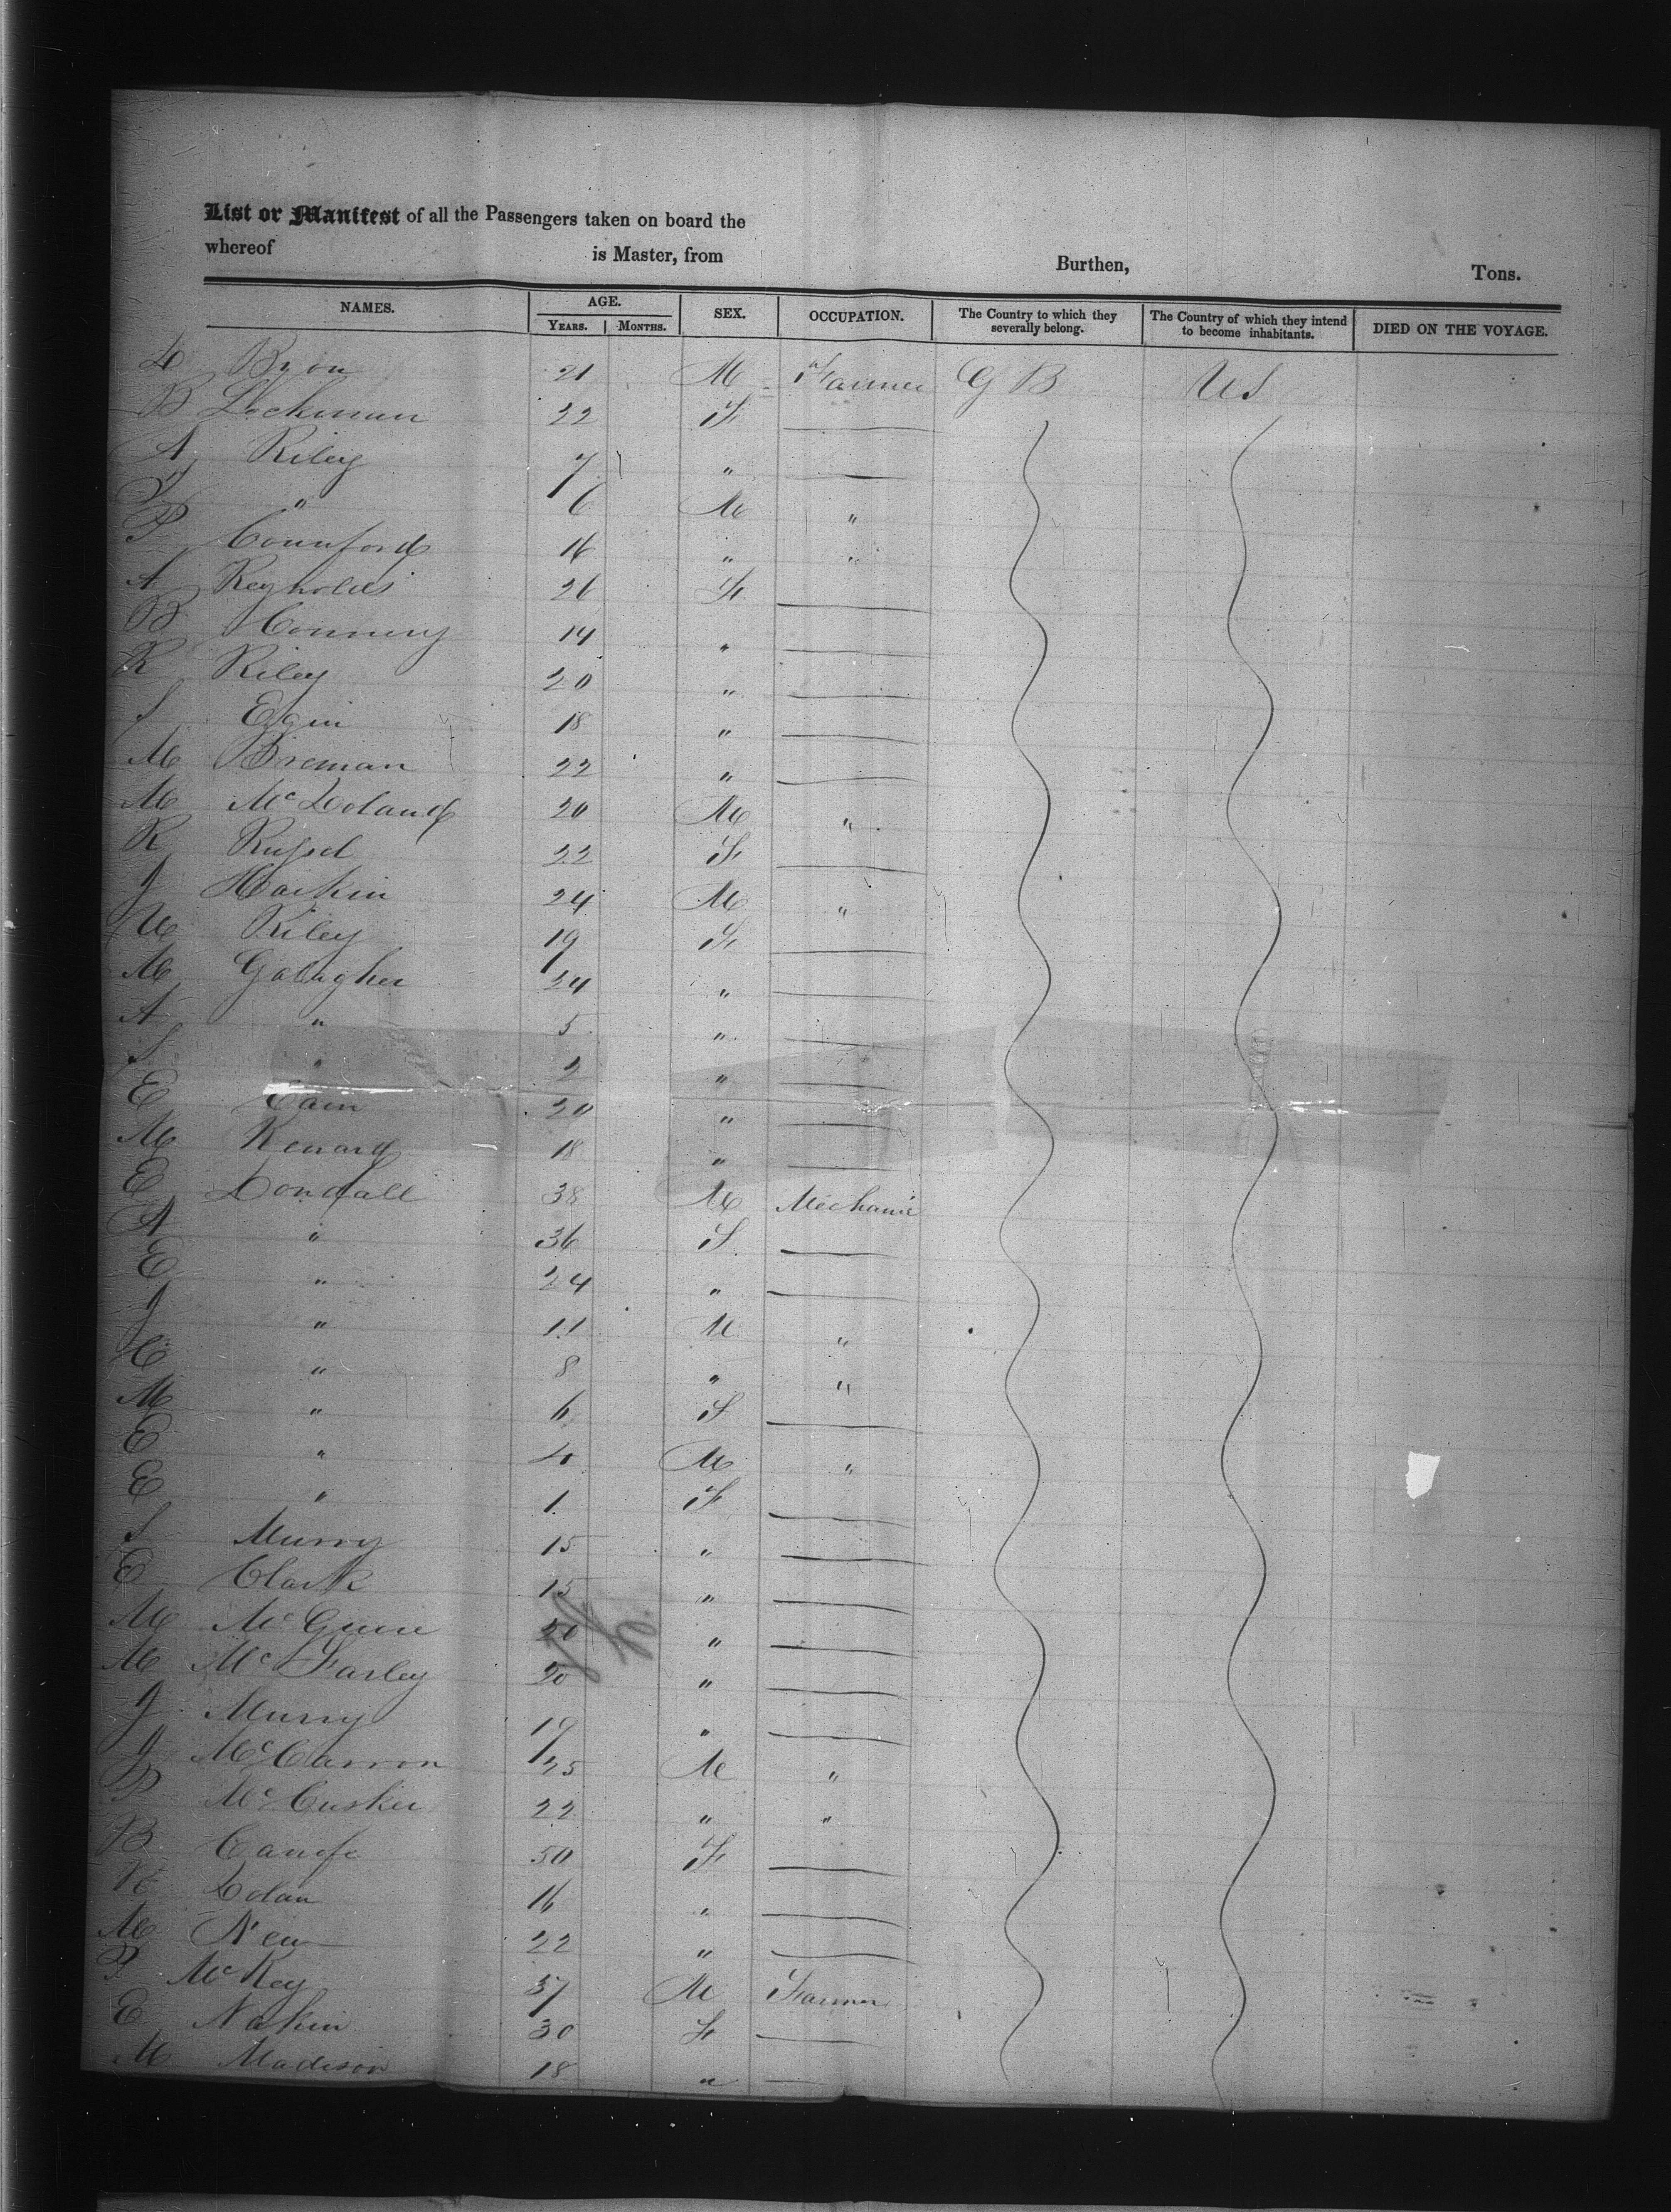 List or Manifest of all the Passengers taken on board the
whereof is Master, from Burthen, Tons.
NAMES. AGE. SEX. OCCUPATION. The Country to which they severally belong. The Country of which they intend to become inhabitants. DIED ON THE VOYAGE.
YEARS. MONTHS.
D Bryon 21 M Farmer G B U S
B Lockman 22 F —
A Riley 7 " —
" 6 M "
P Counford 16 " "
A Reynolds 26 F —
B Connery 14 " —
R Riley 20 " —
S Egin 18 " —
M Breman 22 " —
M McDoland 20 M "
R Russel 22 F —
J Harkin 24 M "
M Riley 19 F —
M Galagher 24 " —
A " 5 " —
S " 2 " —
E Cain 20 " —
M Kenard 18 " —
E Dondall 38 M Mechanic
A " 36 F —
E " 24 " —
J " 11 M "
C " 8 " "
M " 6 F —
E " 4 M "
E " 1 F —
S Murry 15 " —
E Clark 15 " —
M McGuire 20 " —
M McFarley 20 " —
J Murry 19 " —
J McCarron 25 M "
P McCusker 22 " "
B 50 F —
Dolan 16 " —
M New 22 " —
P McKey 37 M Farmer
E Nakin 30 F —
M Madison 18 " —